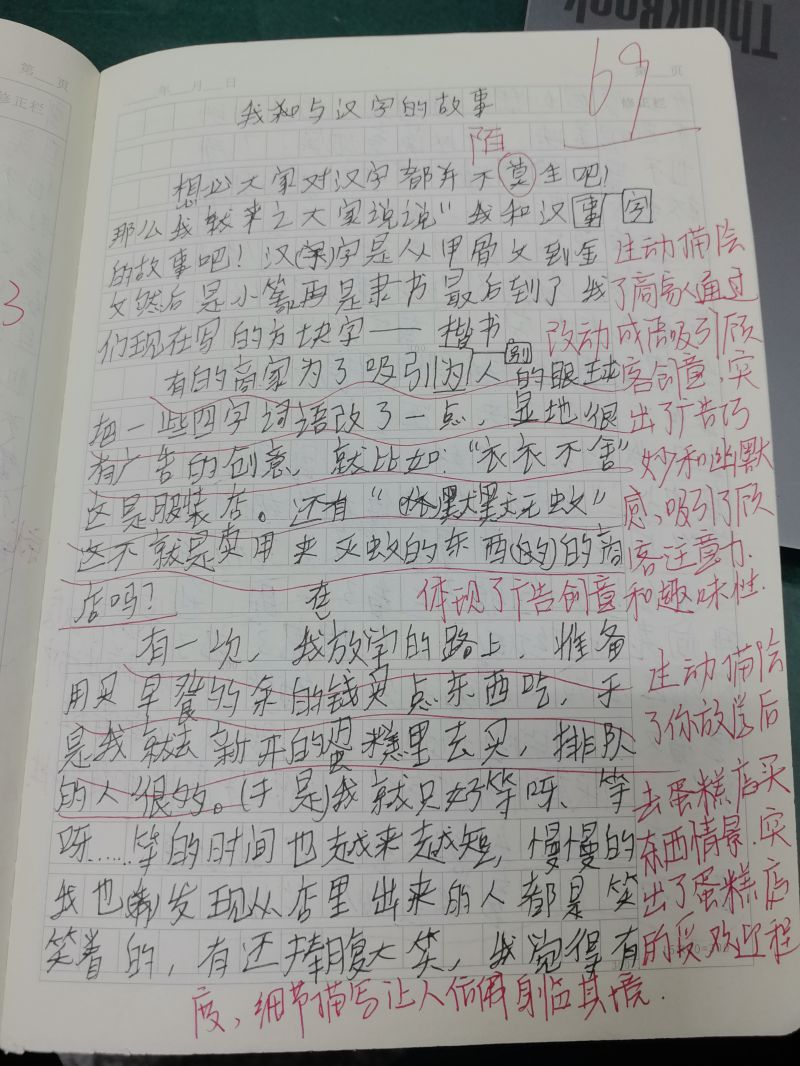 ThinkBook
第 页
修正栏
3
年 月 日
第 页
修正栏
69
我和与汉字的故事
陌
想必大家对汉字都并不莫生吧!
那么我就来之大家说说"我和汉事字
的故事吧!汉字是从甲骨文到金
文然后是小篆再是隶书最后到了我
们现在写的方块字——楷书
别
有的商家为了吸引为人的眼球
把一些四字词语改了一点,显地很
有广告的创意,就比如:"衣衣不舍"
这是服装店。还有"默默无蚊"
这不就是卖用来灭蚊的东西(的)的商
店吗?
在
有一次,我放学的路上,准备
用买早餐的余的钱买点东西吃,于
是我就去新开的蛋糕里去买,排队
的人很多。(于是)我就只好等呀、等
呀……等的时间也越来越短,慢慢的
我也发现从店里出来的人都是笑
笑着的,有还捧腹大笑,我觉得有
生动描绘
了商家人通过
改动成语吸引顾
客创意,突
出了广告巧
妙和幽默
感,吸引了顾
客注意力.
体现了广告创意和趣味性.
生动描绘
了你放学后
去蛋糕店买
东西情景,突
出了蛋糕店
的受欢迎程
度,细节描写让人仿佛身临其境.